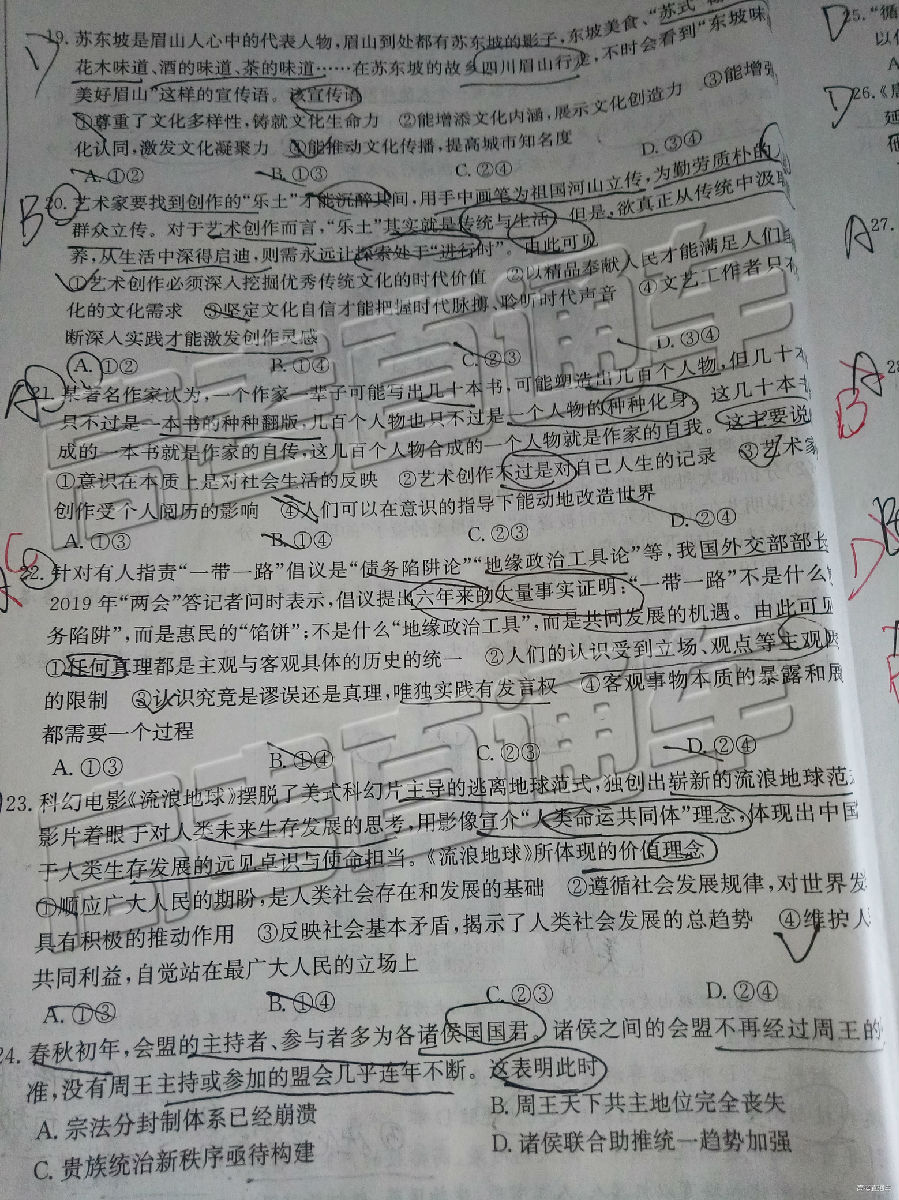 19. 苏东坡是眉山人心中的代表人物,眉山到处都有苏东坡的影子,东坡美食、“苏式”
花木味道、酒的味道、茶的味道……在苏东坡的故乡四川眉山行走,不时会看到“东坡味
美好眉山”这样的宣传语。该宣传语
①尊重了文化多样性,铸就文化生命力 ②能增添文化内涵,展示文化创造力 ③能增强
化认同,激发文化凝聚力 ④能推动文化传播,提高城市知名度
A. ①② B. ①③ C. ②④ D. ③④
20. 艺术家要找到创作的“乐土”才能沉醉其间,用手中画笔为祖国河山立传,为勤劳质朴的
群众立传。对于艺术创作而言,“乐土”其实就是传统与生活。但是,欲真正从传统中汲取
养,从生活中深得启迪,则需永远让探索处于“进行时”。由此可见
①艺术创作必须深入挖掘优秀传统文化的时代价值 ②以精品奉献人民才能满足人们
化的文化需求 ③坚定文化自信才能把握时代脉搏、聆听时代声音 ④文艺工作者只有
断深入实践才能激发创作灵感
A. ①② B. ①④ C. ②③ D. ③④
21. 某著名作家认为,一个作家一辈子可能写出几十本书,可能塑造出几百个人物,但几十本
只不过是一本书的种种翻版,几百个人物也只不过是一个人物的种种化身。这几十本书
成的一本书就是作家的自传,这几百个人物合成的一个人物就是作家的自我。这主要说
①意识在本质上是对社会生活的反映 ②艺术创作不过是对自己人生的记录 ③艺术家
创作受个人阅历的影响 ④人们可以在意识的指导下能动地改造世界
A. ①③ B. ①④ C. ②③ D. ②④
22. 针对有人指责“一带一路”倡议是“债务陷阱论”“地缘政治工具论”等,我国外交部部长
2019年“两会”答记者问时表示,倡议提出六年来的大量事实证明:“一带一路”不是什么
务陷阱”,而是惠民的“馅饼”;不是什么“地缘政治工具”,而是共同发展的机遇。由此可见
①任何真理都是主观与客观具体的历史的统一 ②人们的认识受到立场、观点等主观
的限制 ③认识究竟是谬误还是真理,唯独实践有发言权 ④客观事物本质的暴露和展
都需要一个过程
A. ①③ B. ①④ C. ②③ D. ②④
23. 科幻电影《流浪地球》摆脱了美式科幻片主导的逃离地球范式,独创出崭新的流浪地球范
影片着眼于对人类未来生存发展的思考,用影像宣介“人类命运共同体”理念,体现出中国
于人类生存发展的远见卓识与使命担当。《流浪地球》所体现的价值理念
①顺应广大人民的期盼,是人类社会存在和发展的基础 ②遵循社会发展规律,对世界发
具有积极的推动作用 ③反映社会基本矛盾,揭示了人类社会发展的总趋势 ④维护人
共同利益,自觉站在最广大人民的立场上
A. ①③ B. ①④ C. ②③ D. ②④
24. 春秋初年,会盟的主持者、参与者多为各诸侯国国君。诸侯之间的会盟不再经过周王的
准,没有周王主持或参加的盟会几乎连年不断。这表明此时
A. 宗法分封制体系已经崩溃 B. 周王天下共主地位完全丧失
C. 贵族统治新秩序亟待构建 D. 诸侯联合助推统一趋势加强
D
B
A
C
D 25. “循
以
A
D 26. 《
延
A 27.
A 28
B
D
高考直通车